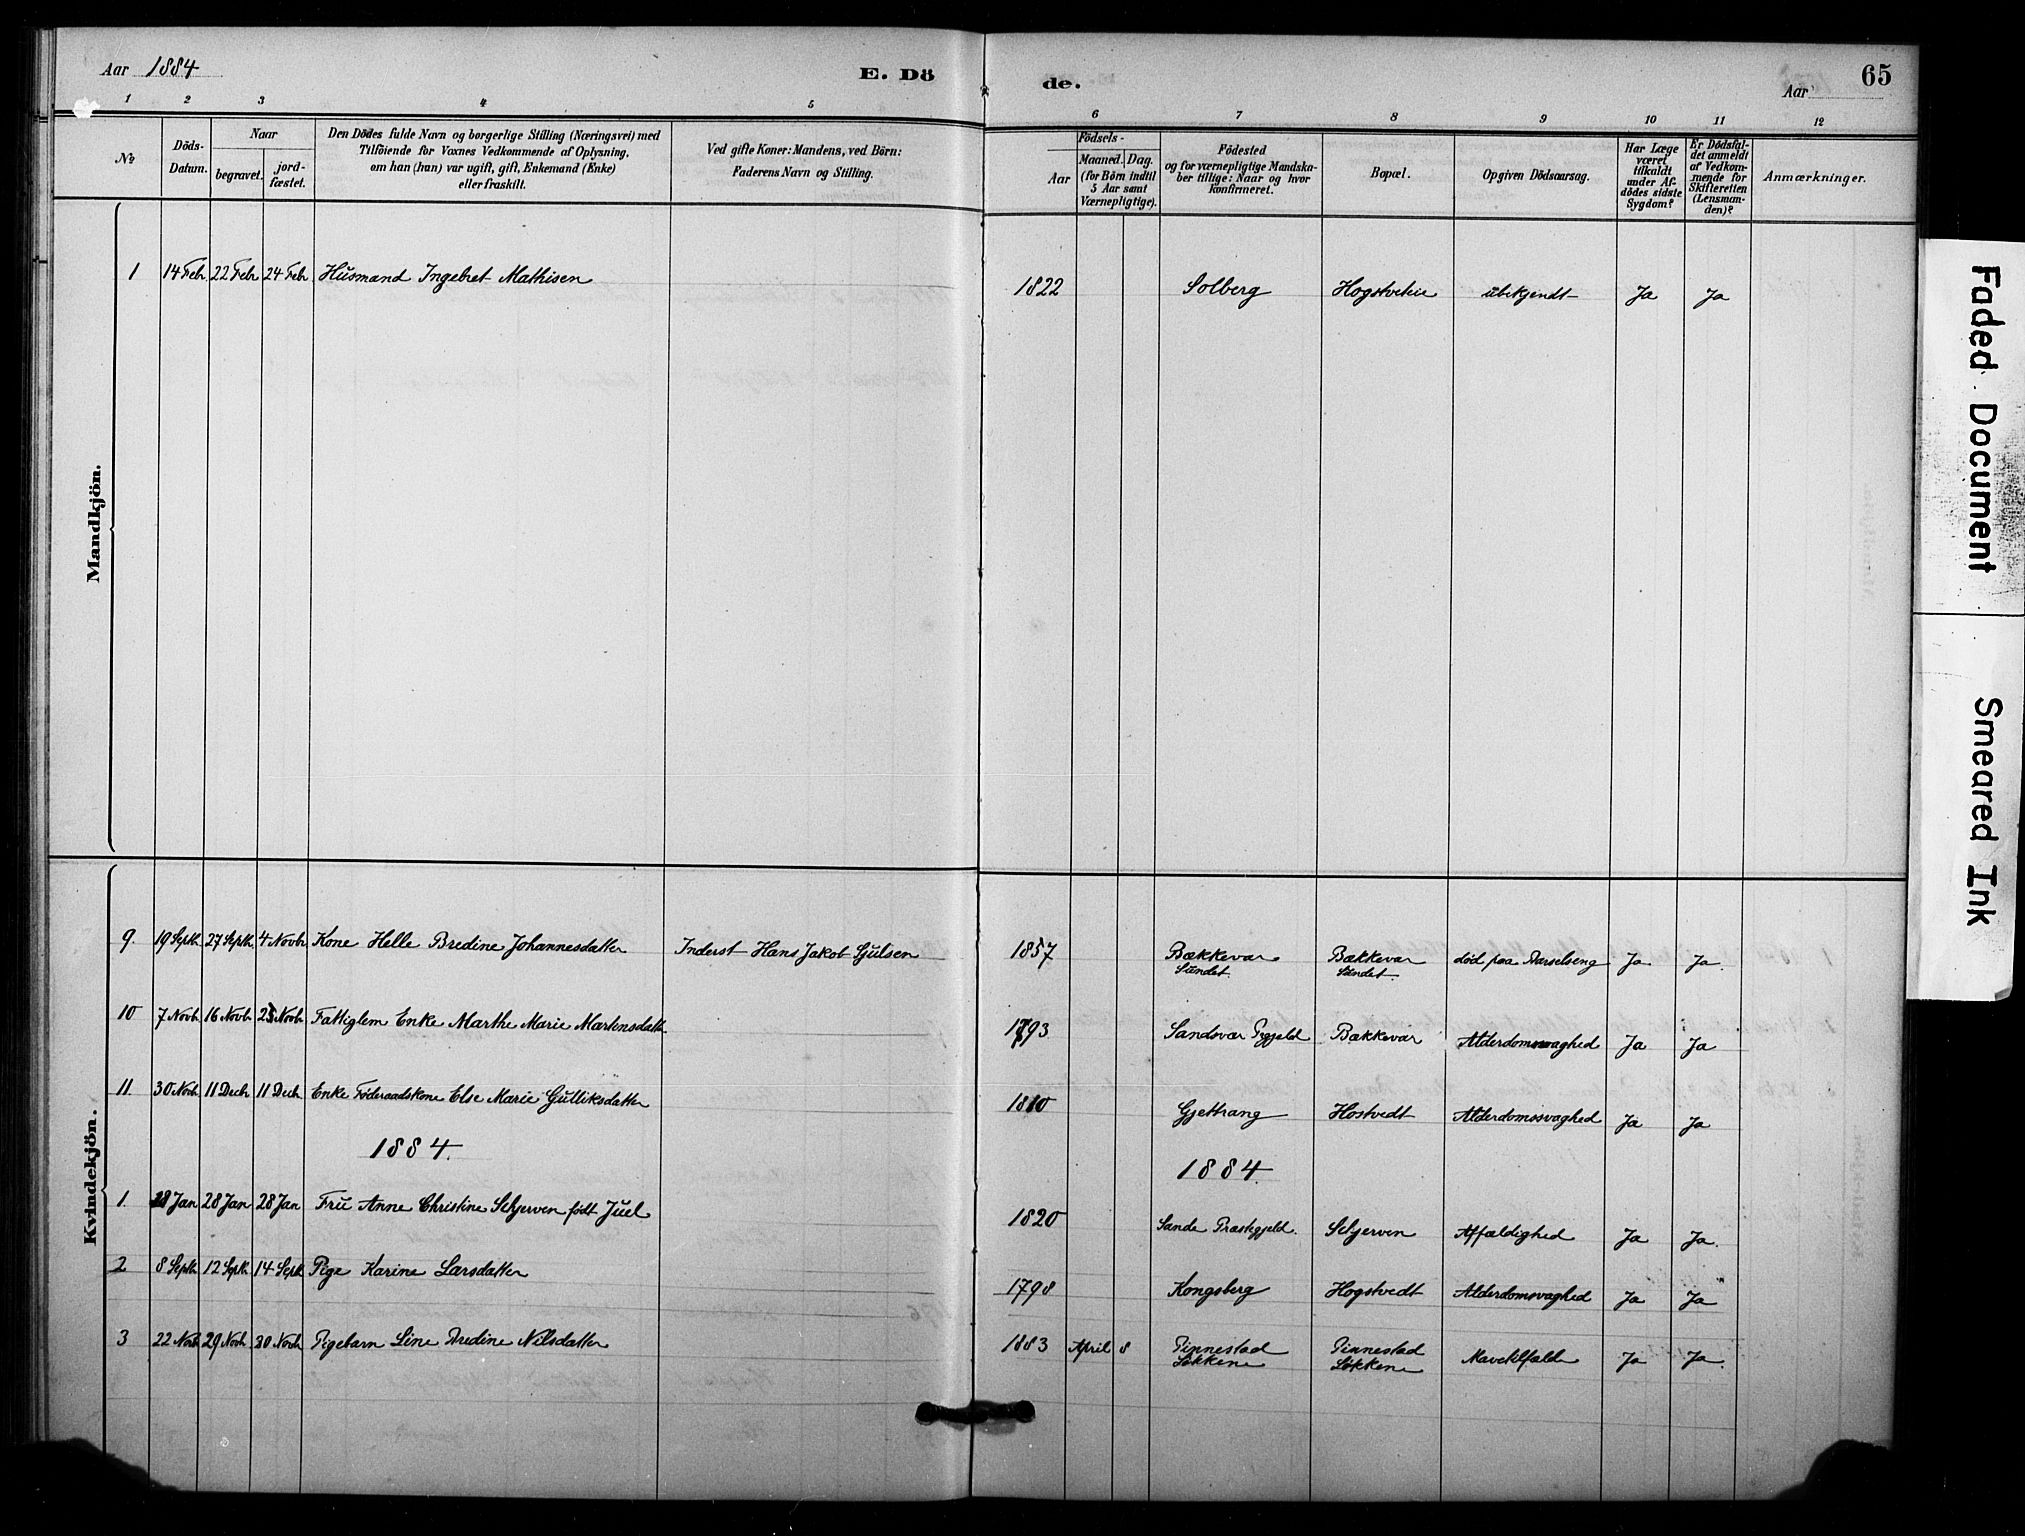 Aar 1884
E. Dö
de.
Aar
65
1 2 3 4 5
6 7 8 9 10 11 12
№
Döds-
Datum.
Naar
begravet.
jord-
fæstet.
Den Dödes fulde Navn og borgerlige Stilling (Næringsvei) med
Tilföiende for Voxnes Vedkommende af Oplysning,
om han (hun) var ugift, gift, Enkemand (Enke)
eller fraskilt.
Ved gifte Koner: Mandens, ved Börn:
Faderens Navn og Stilling.
Födsels-
Aar
Maaned. Dag.
(for Börn indtil
5 Aar samt
Værnepligtige).
Födested
og for værnepligtige Mandska-
ber tillige: Naar og hvor
konfirmeret.
Bopæl.
Opgiven Dödsaarsag.
Har Læge
været
tilkaldt
under Af-
dödes sidste
Sygdom?
Er Dödsfal-
det anmeldt
af Vedkom-
mende for
Skifteretten
(Lensman-
den)?
Anmærkninger.
Mandkjön.
1 14 Febr 22 Febr 24 Febr Husmand Ingebret Mathisen 1822 Solberg Hogstveteie ubekjendt Ja Ja
Kvindekjön.
9. 19 Septb. 27 Septb. 4 Novbr Kone Helle Bredine Johannesdatter Inderst Hans Jakob Gulsen 1857 Bækkevar Bækkevar död paa Barselseng Ja Ja.
Sundet. Sundet.
10 7 Novb. 16 Novb. 23 Novb. Fattiglem Enke Marthe Marie Martensdatter 1793 Sandsvær Prgjeld Bækkevar Alderdomssvaghed Ja Ja
11. 30 Novb. 11 Decb 11 Decb Enke Föderaadskone Else Marie Gulliksdatter 1810 Gjettrang Hostvedt Alderdomssvaghed Ja Ja
1884. 1884.
1. 18 Jan 28 Jan 28 Jan Fru Anne Christine Schjerven født Juel 1820 Sande Præstegjeld. Schjerven Affældighed Ja Ja.
2 8 Septb. 12 Septb. 14 Septb. Pige Karine Larsdatter 1798 Kongsberg Hogstvedt Alderdomsvaghed Ja Ja
3 22 Novb 29 Novb. 30 Novb Pigebarn Line Andine Nilsdatter 1883 April 8 Pinnestad Pinnestad Mavetilfælde Ja Ja.
Løkkene Løkkene
Faded Document
Smeared Ink